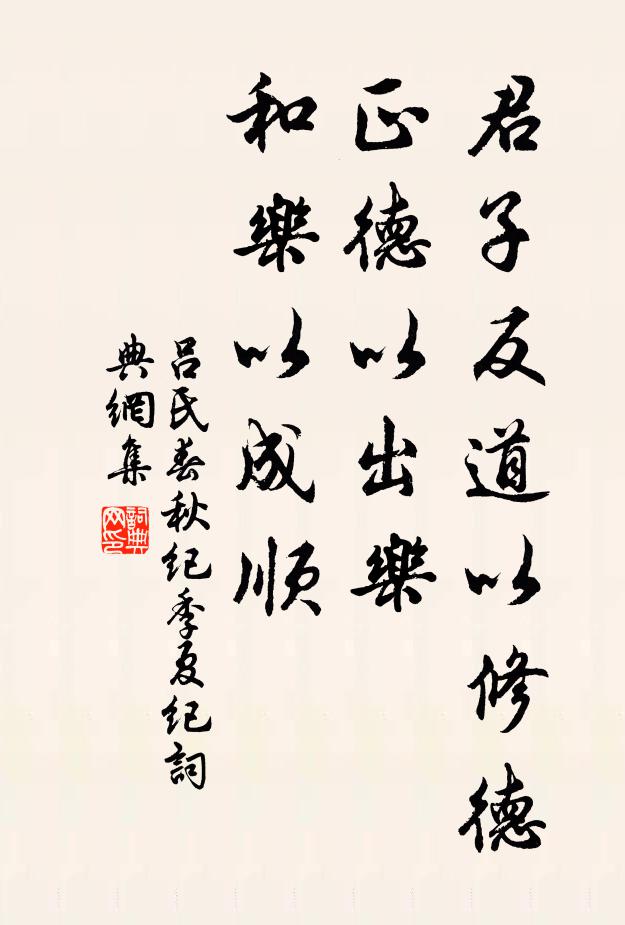 君子反道以修德
正德以出樂
和樂以成順
吕氏春秋纪季夏纪詞
典網集
詞典
网印